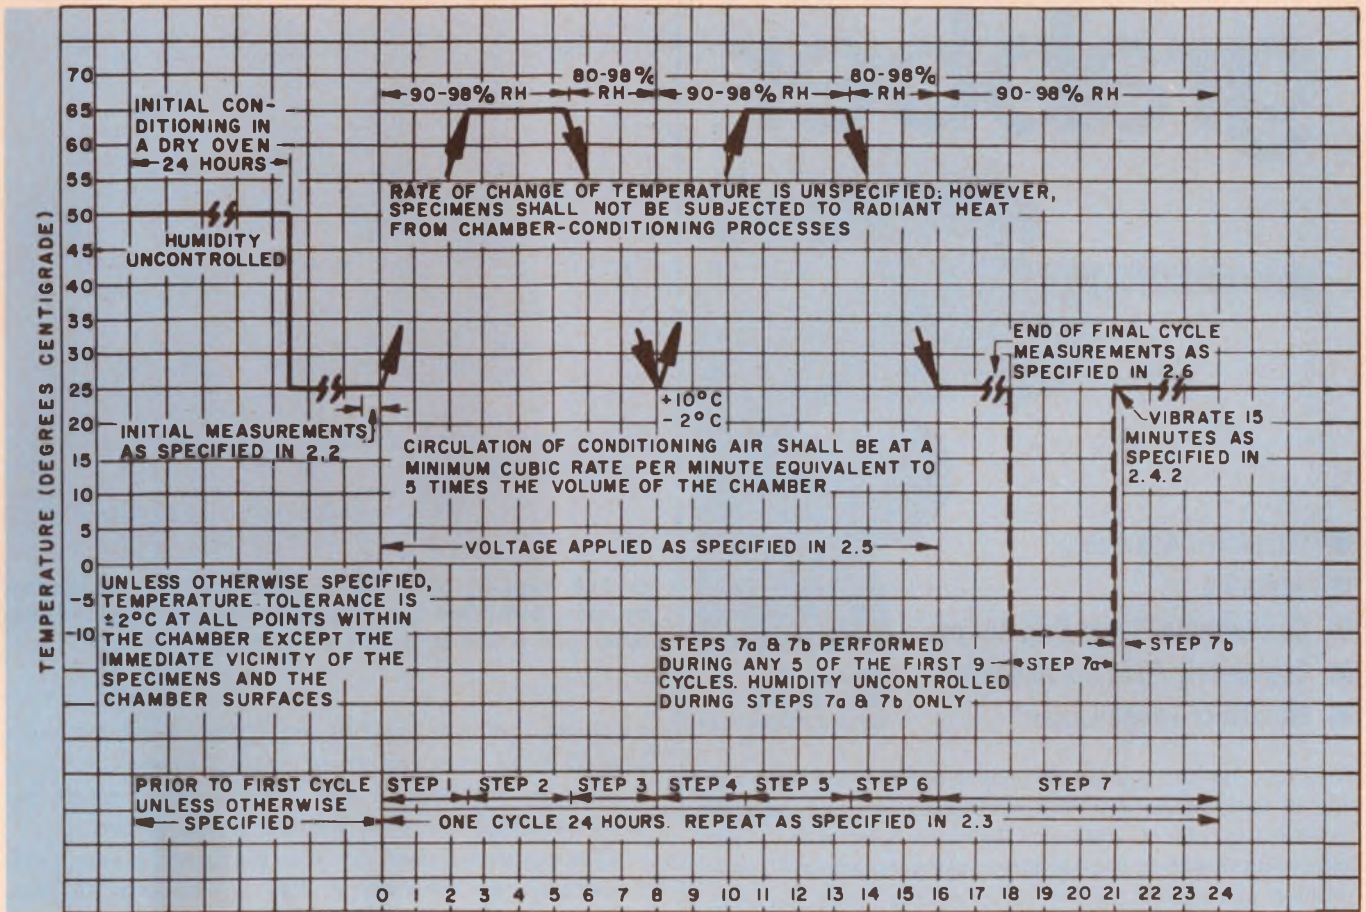 TEMPERATURE (DEGREES CENTIGRADE)
70
65
60
55
50
45
40
35
30
25
20
15
10
5
0
-5
-10
INITIAL CON-
DITIONING IN
A DRY OVEN
24 HOURS
HUMIDITY
UNCONTROLLED
90-98% RH
80-98%
RH
90-98% RH
80-98%
RH
90-98% RH
RATE OF CHANGE OF TEMPERATURE IS UNSPECIFIED; HOWEVER,
SPECIMENS SHALL NOT BE SUBJECTED TO RADIANT HEAT
FROM CHAMBER-CONDITIONING PROCESSES
END OF FINAL CYCLE
MEASUREMENTS AS
SPECIFIED IN 2.6
+10°C
-2°C
INITIAL MEASUREMENTS
AS SPECIFIED IN 2.2
CIRCULATION OF CONDITIONING AIR SHALL BE AT A
MINIMUM CUBIC RATE PER MINUTE EQUIVALENT TO
5 TIMES THE VOLUME OF THE CHAMBER
VIBRATE 15
MINUTES AS
SPECIFIED IN
2.4.2
VOLTAGE APPLIED AS SPECIFIED IN 2.5
UNLESS OTHERWISE SPECIFIED,
TEMPERATURE TOLERANCE IS
±2°C AT ALL POINTS WITHIN
THE CHAMBER EXCEPT THE
IMMEDIATE VICINITY OF THE
SPECIMENS AND THE
CHAMBER SURFACES
STEPS 7a & 7b PERFORMED
DURING ANY 5 OF THE FIRST 9
CYCLES. HUMIDITY UNCONTROLLED
DURING STEPS 7a & 7b ONLY
STEP 7a
STEP 7b
PRIOR TO FIRST CYCLE
UNLESS OTHERWISE
SPECIFIED
STEP 1 STEP 2 STEP 3 STEP 4 STEP 5 STEP 6 STEP 7
ONE CYCLE 24 HOURS. REPEAT AS SPECIFIED IN 2.3
0 1 2 3 4 5 6 7 8 9 10 11 12 13 14 15 16 17 18 19 20 21 22 23 24